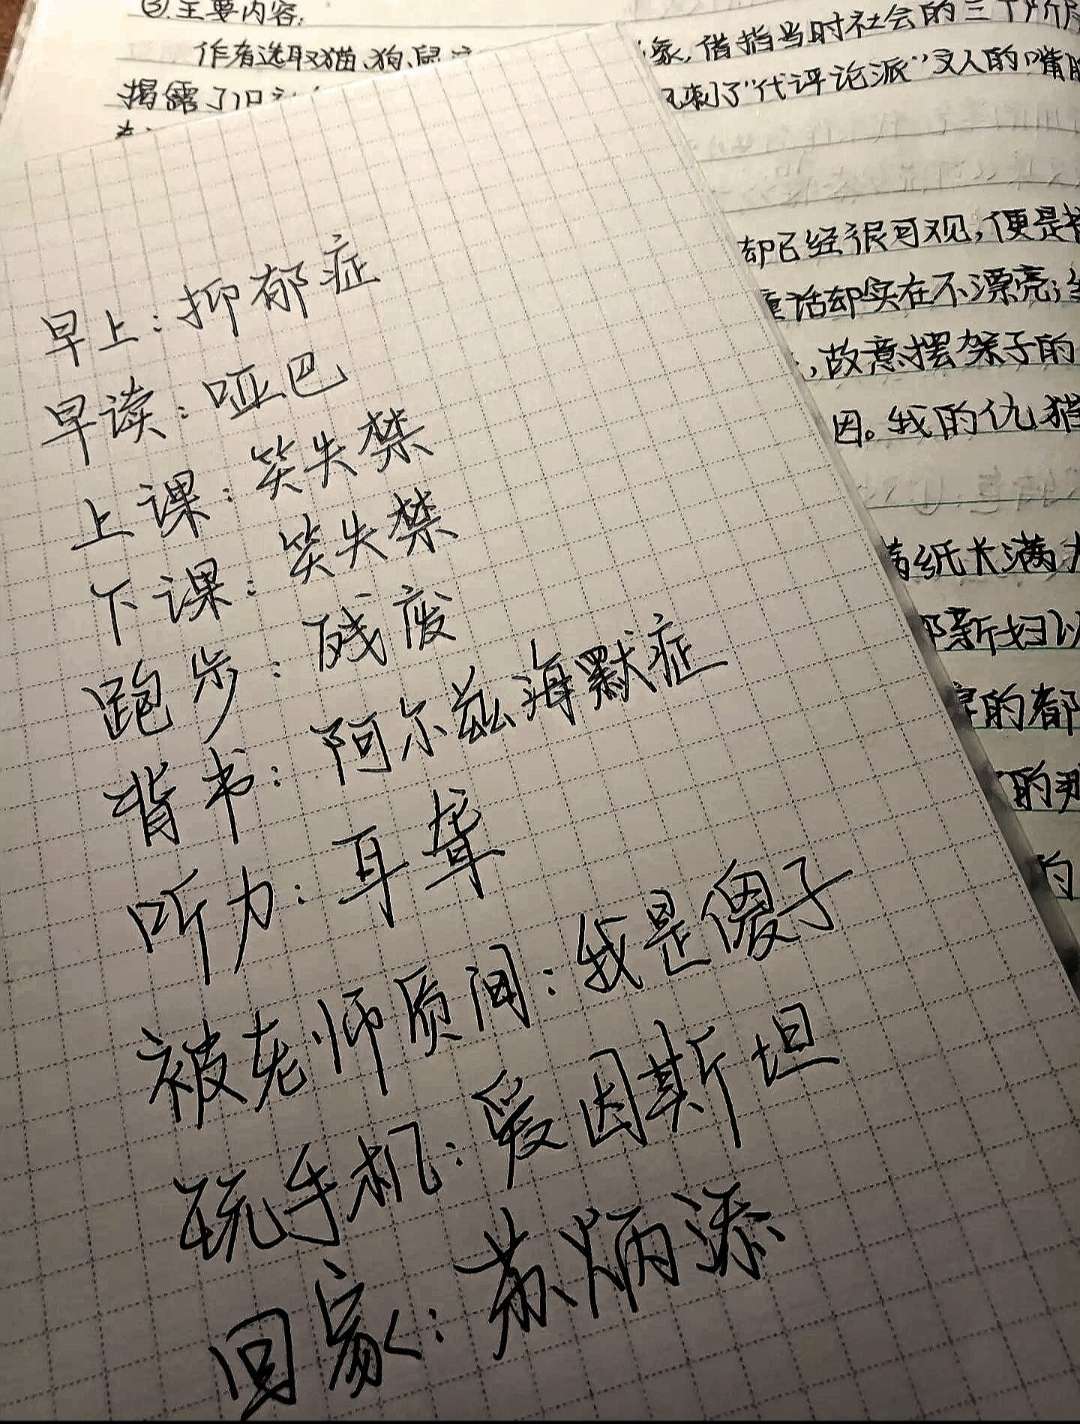 ③主要内容:
作者选取猫、狗、鼠
象,借指当时社会的三个
揭露了旧
刺了"代评论派"文人的"嘴脸
却已经很可观,便是
童话却实在不漂亮;
,故意摆架子的
因。我的仇猫
满纸大满
新妇以
的都
的
早上:抑郁症
早读:哑巴
上课:笑失禁
下课:笑失禁
跑步:残废
背书:阿尔兹海默症
听力:耳聋
被老师质问:我是傻子
玩手机:爱因斯坦
回家:苏炳添